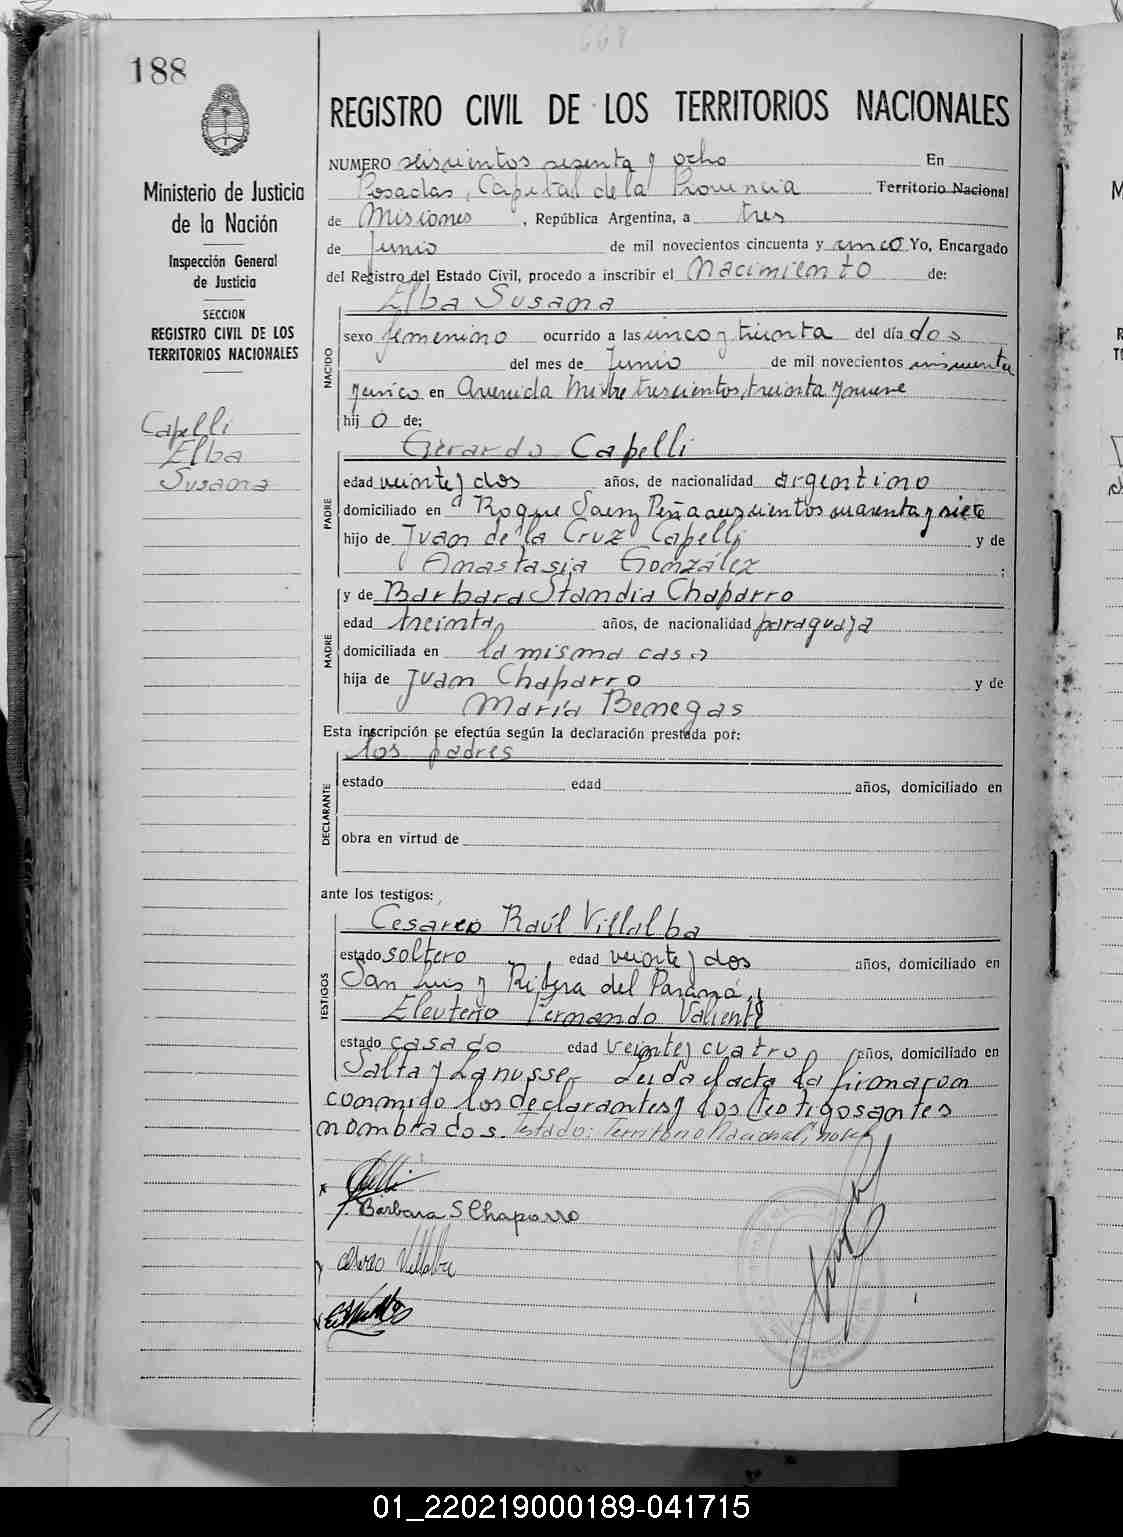 668
188
REGISTRO CIVIL DE LOS TERRITORIOS NACIONALES
Ministerio de Justicia
de la Nación
Inspección General
de Justicia
SECCION
REGISTRO CIVIL DE LOS
TERRITORIOS NACIONALES
Capelli
Elba
Susana
NUMERO seiscientos sesenta y ocho En
Posadas, Capital de la Provincia Territorio Nacional
de Misiones, República Argentina, a tres
de Junio de mil novecientos cincuenta y cinco Yo, Encargado
del Registro del Estado Civil, procedo a inscribir el Nacimiento de:
Elba Susana
NACIDO
sexo femenino ocurrido a las cinco y treinta del día dos
del mes de Junio de mil novecientos cincuenta
y cinco en Avenida Mitre trescientos treinta y nueve
hij o de:
Gerardo Capelli
PADRE
edad veinte y dos años, de nacionalidad argentino
domiciliado en Roque Saenz Peña cuarenta y siete
hijo de Juan de la Cruz Capelli y de
Anastasia González ;
y de Barbara Standia Chaparro
MADRE
edad treinta años, de nacionalidad paraguaya
domiciliada en la misma casa
hija de Juan Chaparro y de
María Benegas
Esta inscripción se efectúa según la declaración prestada por:
los padres
DECLARANTE
estado edad años, domiciliado en
obra en virtud de
ante los testigos:
Cesareo Raúl Villalba
TESTIGOS
estado soltero edad veinte y dos años, domiciliado en
San Luis y Ribera del Paraná y
Eleuterio Fernando Valiente
estado casado edad veinte y cuatro años, domiciliado en
Salta y Lanusse. Leida el acta la firmaron
conmigo los declarantes y los testigos antes
nombrados. Testado: Territorio Nacional, no vale
Barbara S Chaparro
Cesareo Villalba
01_220219000189-041715